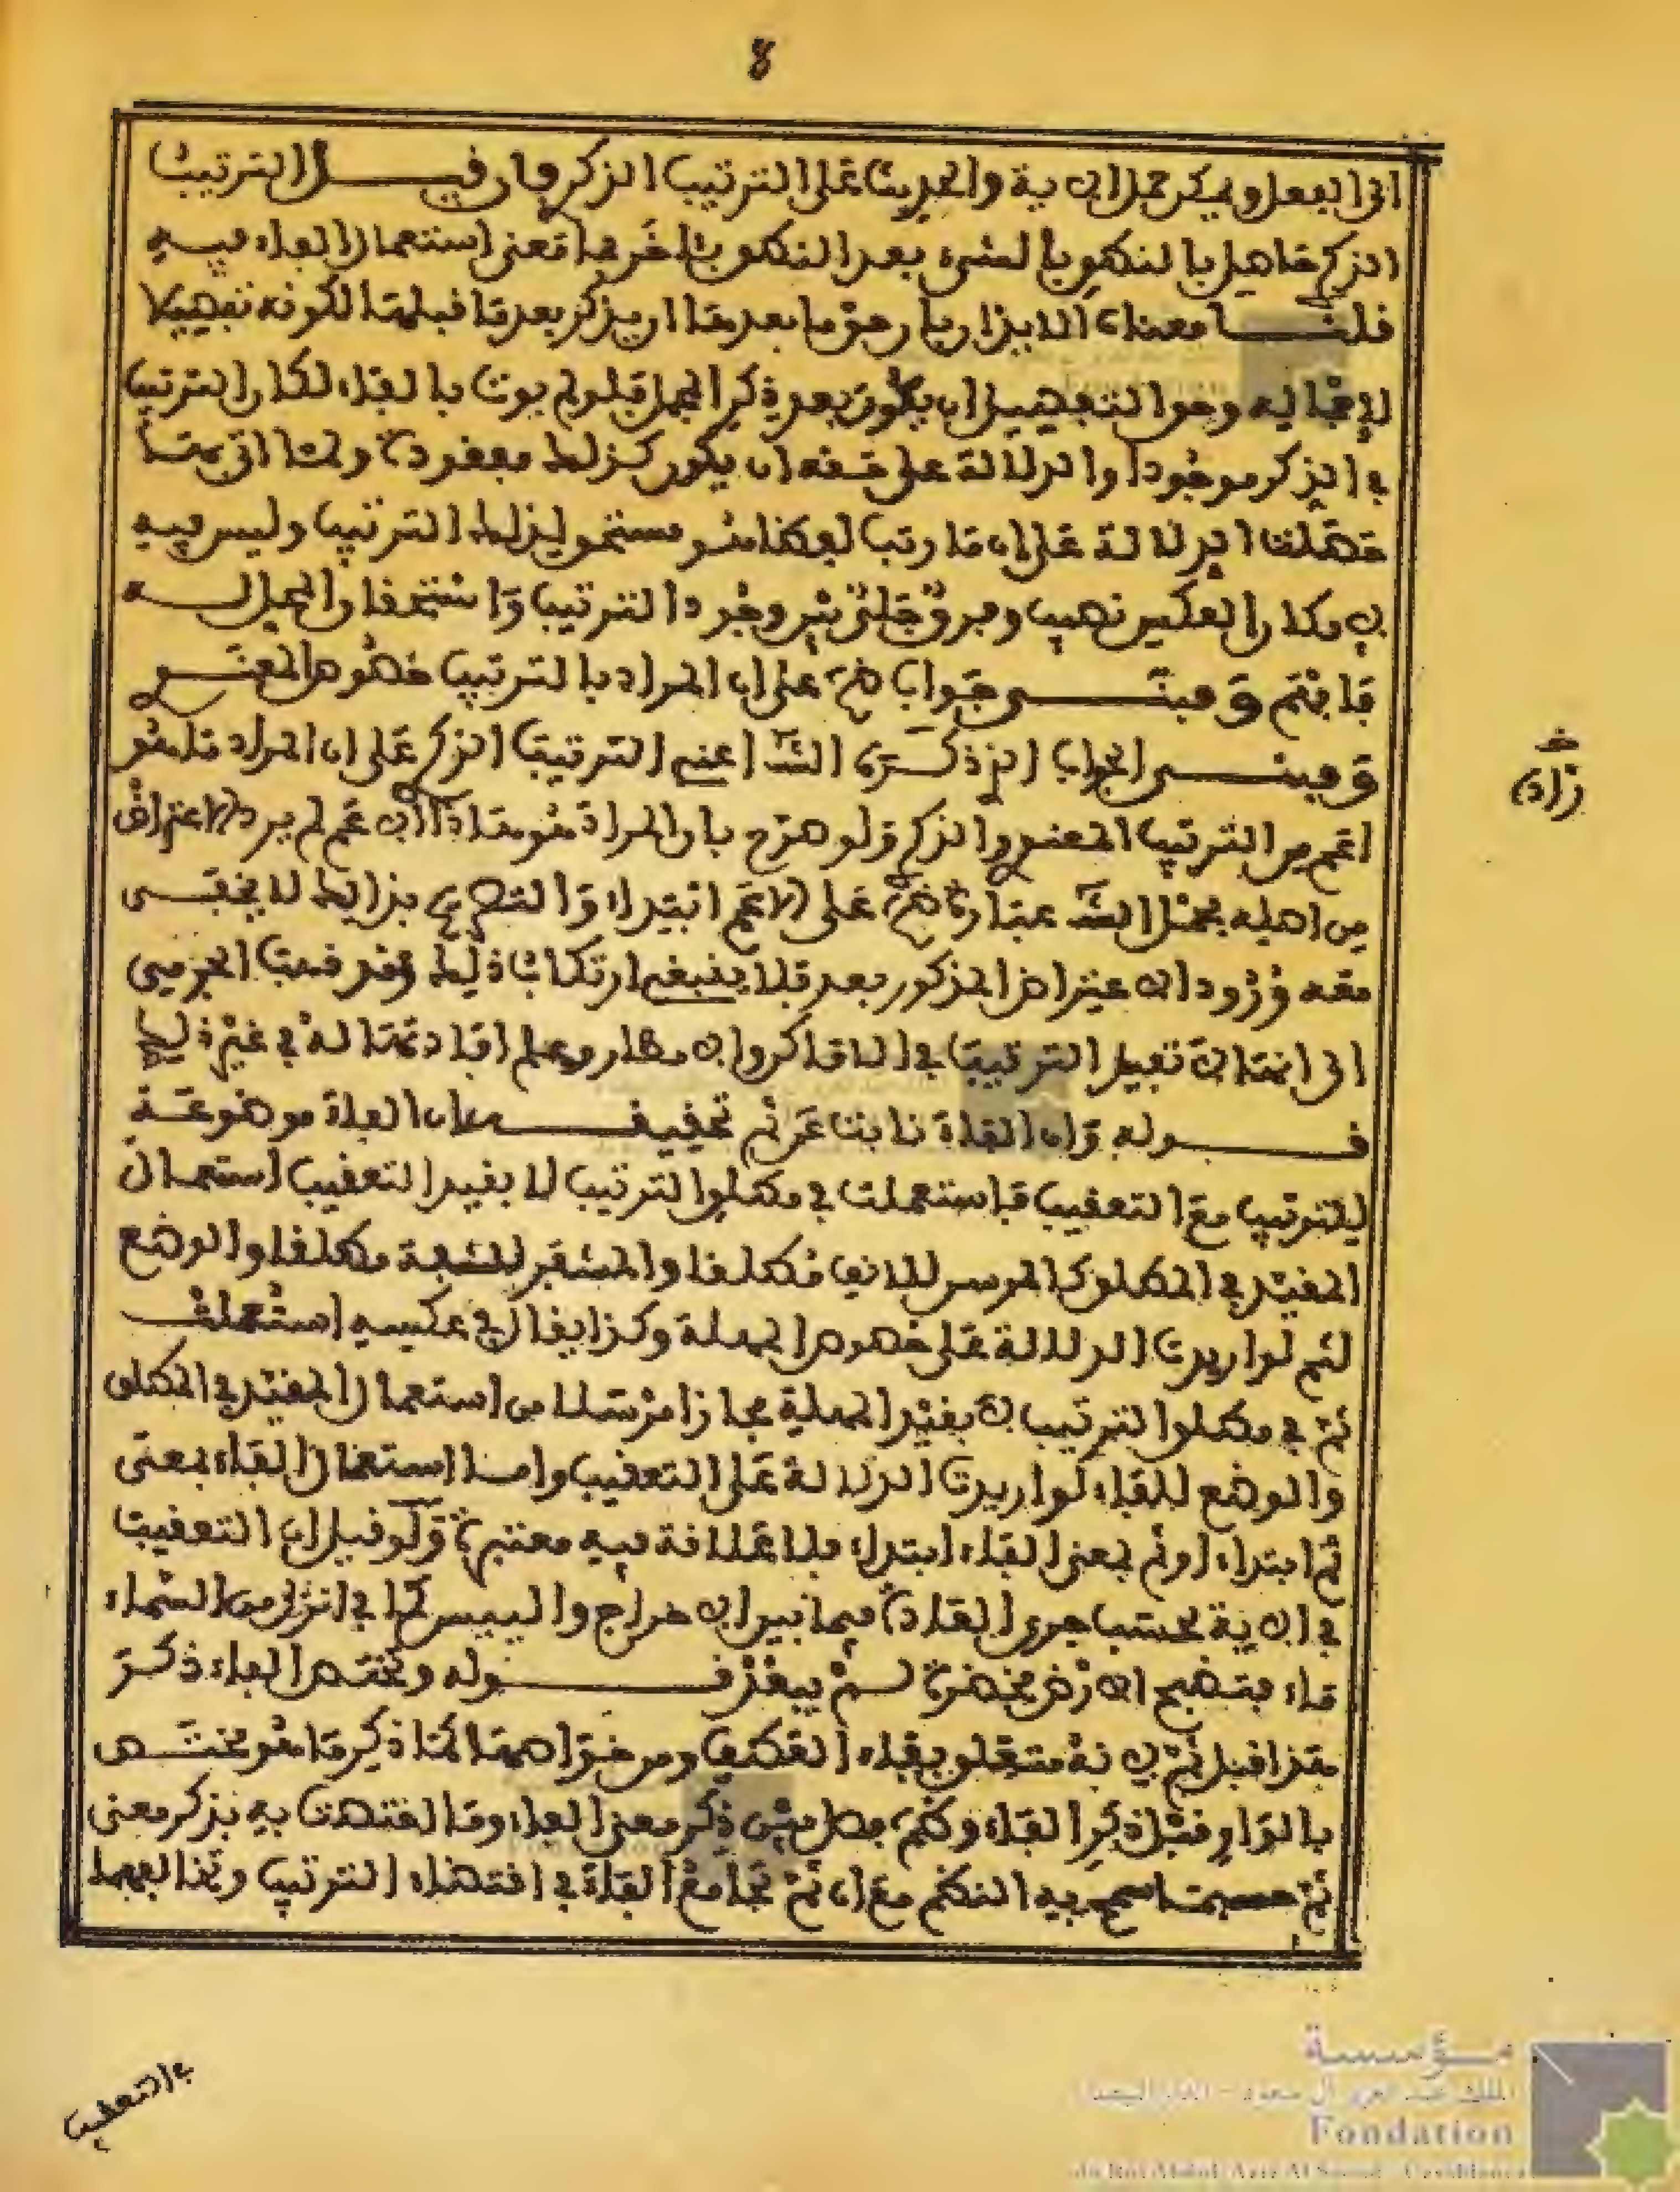 8
الى الفعل ويمكن حمل الآية والحديث على الترتيب الذكر فإن قيل الترتيب
الذكر حاصل بالنطق بالشيء بعد النطق بالآخر فما معنى استعمال الفاء فيه
قلنا معناه الإيذان بأن حق ما بعدها أن يذكر بعد ما قبلها لكونه تفصيلا
لإجماله وحق التفصيل أن يكون بعد ذكر المجمل فلو لم يوت بالفاء لكان الترتيب
في الذكر موجودا والدلالة على حقه أن يكون كذلك مفقودة ولما اتى بها
حصلت الدلالة على أن ما رتب لفظا هو مستحق لذلك الترتيب وليس فيه
وفرق جلي بين وجود الترتيب واستحقاق المحل له
فافهم ومبنى جواب على أن المراد بالترتيب خصوص المعنوي
ومبنى الجواب الذي ذكره الش اعني الترتيب الذكر على أن المراد ما هو
اعم من الترتيب المعنوي والذكر ولو صرح بأن المراد هو هذا الأعم لم يرد الاعتراض
من اصله فحمل الش عبارة على الأعم ابتداء والتصريح بذلك لا يخفى
معه ورود الاعتراض المذكور بعد فلا ينبغي ارتكاب ذلك وقد ذهب الجرمي
الى أن الفاء لا تفيد الترتيب في الأماكن والأمطار وعلم افادتها له في غير ذلك
قوله وأن الفاء نابت عن ثم تحقيقه أن الفاء موضوعة
للترتيب مع التعقيب فاستعملت في مطلق الترتيب لا بقيد التعقيب استعمال
المقيد في المطلق كالمرسن للأنف مطلقا والمشفر للشفة مطلقا والوضع
لثم لو اريدت الدلالة على خصوص المهلة وكذا يقال في عكسه استعملت
ثم في مطلق الترتيب لا بقيد المهلة مجازا مرسلا من استعمال المقيد في المطلق
والوضع للفاء لو اريدت الدلالة على التعقيب واما استعمال الفاء بمعنى
ثم ابتداء او ثم بمعنى الفاء ابتداء فلا علاقة فيه معتبرة ولو قيل إن التعقيب
في الآية بحسب جري العادة فيما بين الإخراج واليبس كما في انزل من السماء
ماء فتصبح الأرض مخضرة لم يبعد قوله وتختص الفاء ذكر
هذا قبل ثم لأنه متعلق بفاء العطف ومن خواصها كما ذكر ما هو مختص
بالواو قبل ذكر الفاء وثم فصل بين ذكر معنى الفاء وما اختصت به بذكر معنى
ثم حسبما سمح به النظم مع أن ثم تجامع الفاء في اقتضاء الترتيب وتخالفها
خـ
زاده
في التعقيب
مؤسسة
الملك عبد العزيز آل سعود - الدار البيضاء
Fondation
du Roi Abdul-Aziz Al Saoud - Casablanca